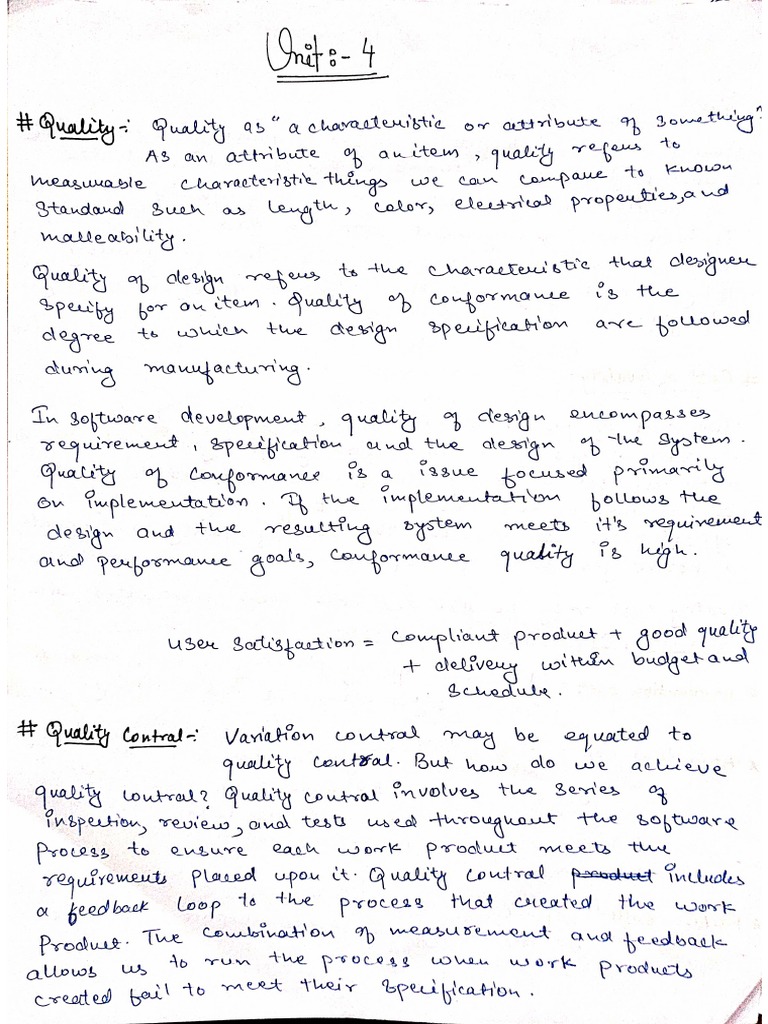 Unit :- 4
# Quality :- Quality as "a characteristic or attribute of something"
As an attribute of an item, quality refers to
measurable characteristic things we can compare to known
standard such as length, color, electrical properties, and
malleability.
Quality of design refers to the characteristic that designer
specify for an item. Quality of conformance is the
degree to which the design specification are followed
during manufacturing.
In software development, quality of design encompasses
requirement, specification and the design of the system.
Quality of conformance is a issue focused primarily
on implementation. If the implementation follows the
design and the resulting system meets it's requirement
and performance goals, conformance quality is high.
User satisfaction = compliant product + good quality
+ delivery within budget and
schedule.
# Quality Contral :- Variation contral may be equated to
quality contral. But how do we achieve
quality contral? Quality contral involves the series of
inspection, review, and tests used throughout the software
process to ensure each work product meets the
requirements placed upon it. Quality contral product includes
a feedback loop to the process that created the work
product. The combination of measurement and feedback
allows us to run the process when work products
created fail to meet their specification.